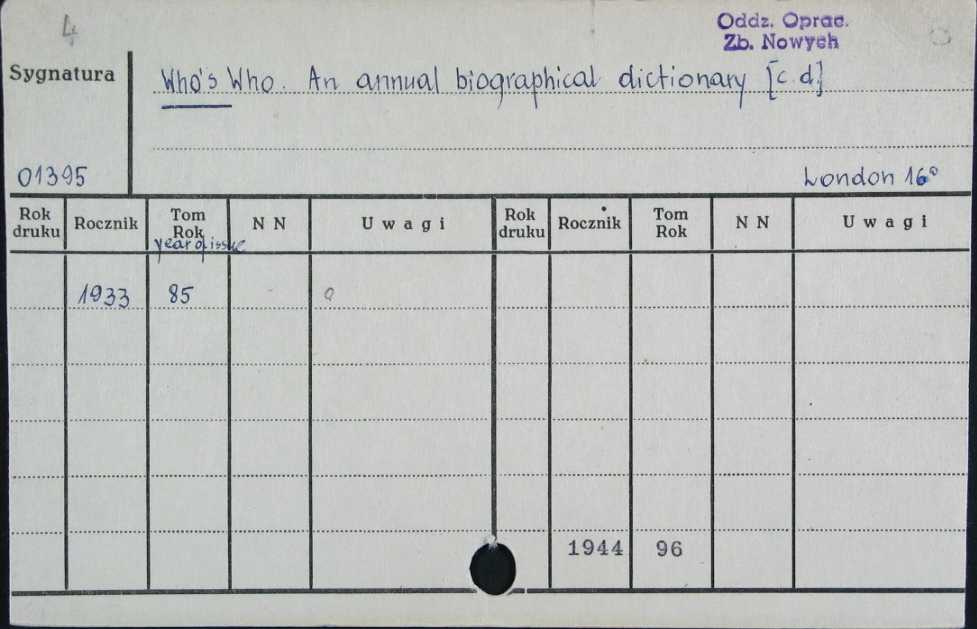 4
Oddz. Oprac.
Zb. Nowych
Sygnatura
Who's Who. An annual biographical dictionary [c.d]
01395
London 16°
Rok druku Rocznik Tom Rok N N Uwagi Rok druku Rocznik Tom Rok N N Uwagi
year of issue
1933 85
1944 96